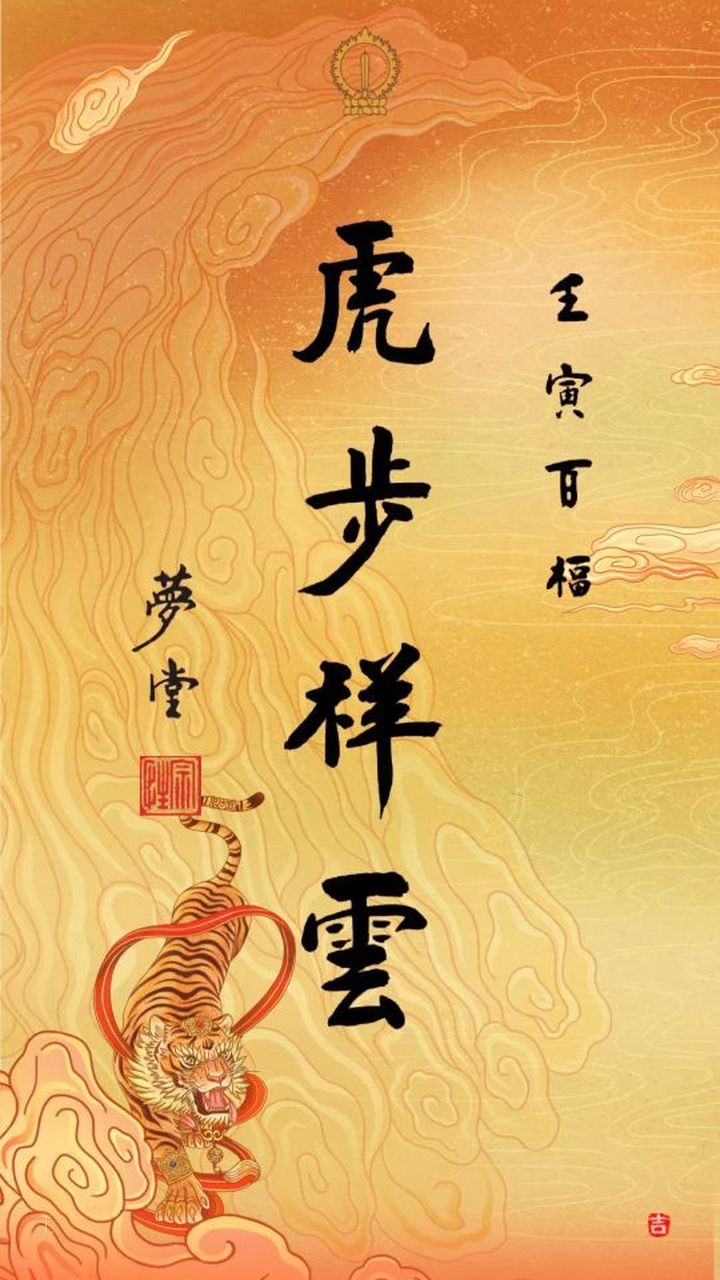 壬寅百福
虎步祥雲
夢堂
宗性
吉